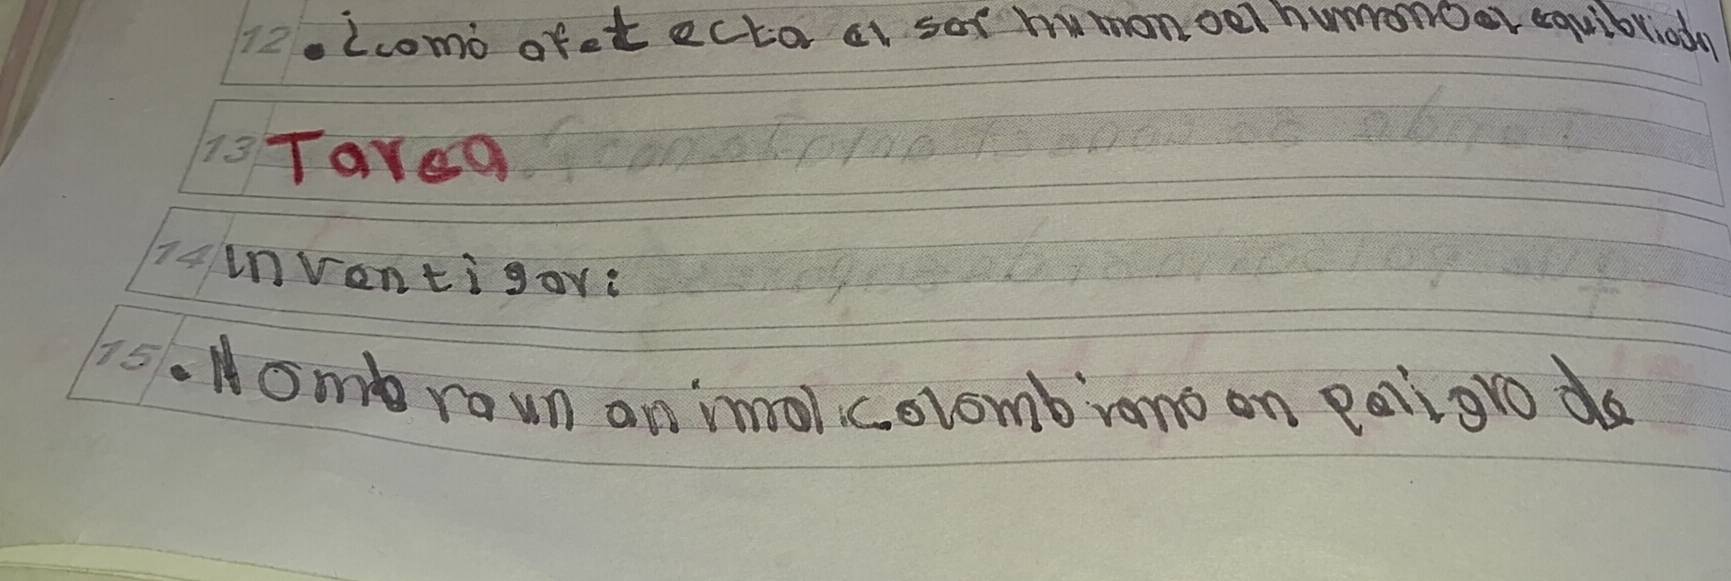 12 • ¿comó afet ecta el ser humon oel humono el equibriode
13 Tarea
14 inventigar:
15 • Nombra un animal colombiano en peligro de